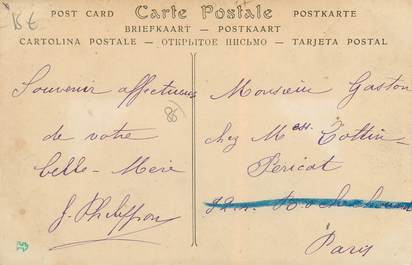 18 €
POST CARD Carte Postale POSTKARTE
BRIEFKAART — POSTKAART
CARTOLINA POSTALE — ОТКРЫТОЕ ПИСЬМО — TARJETA POSTAL
Souvenir affectueux
de votre
belle-Mère
J. Philippon
86
Monsieur Gaston
chez M
Cottin
Pericat
Paris